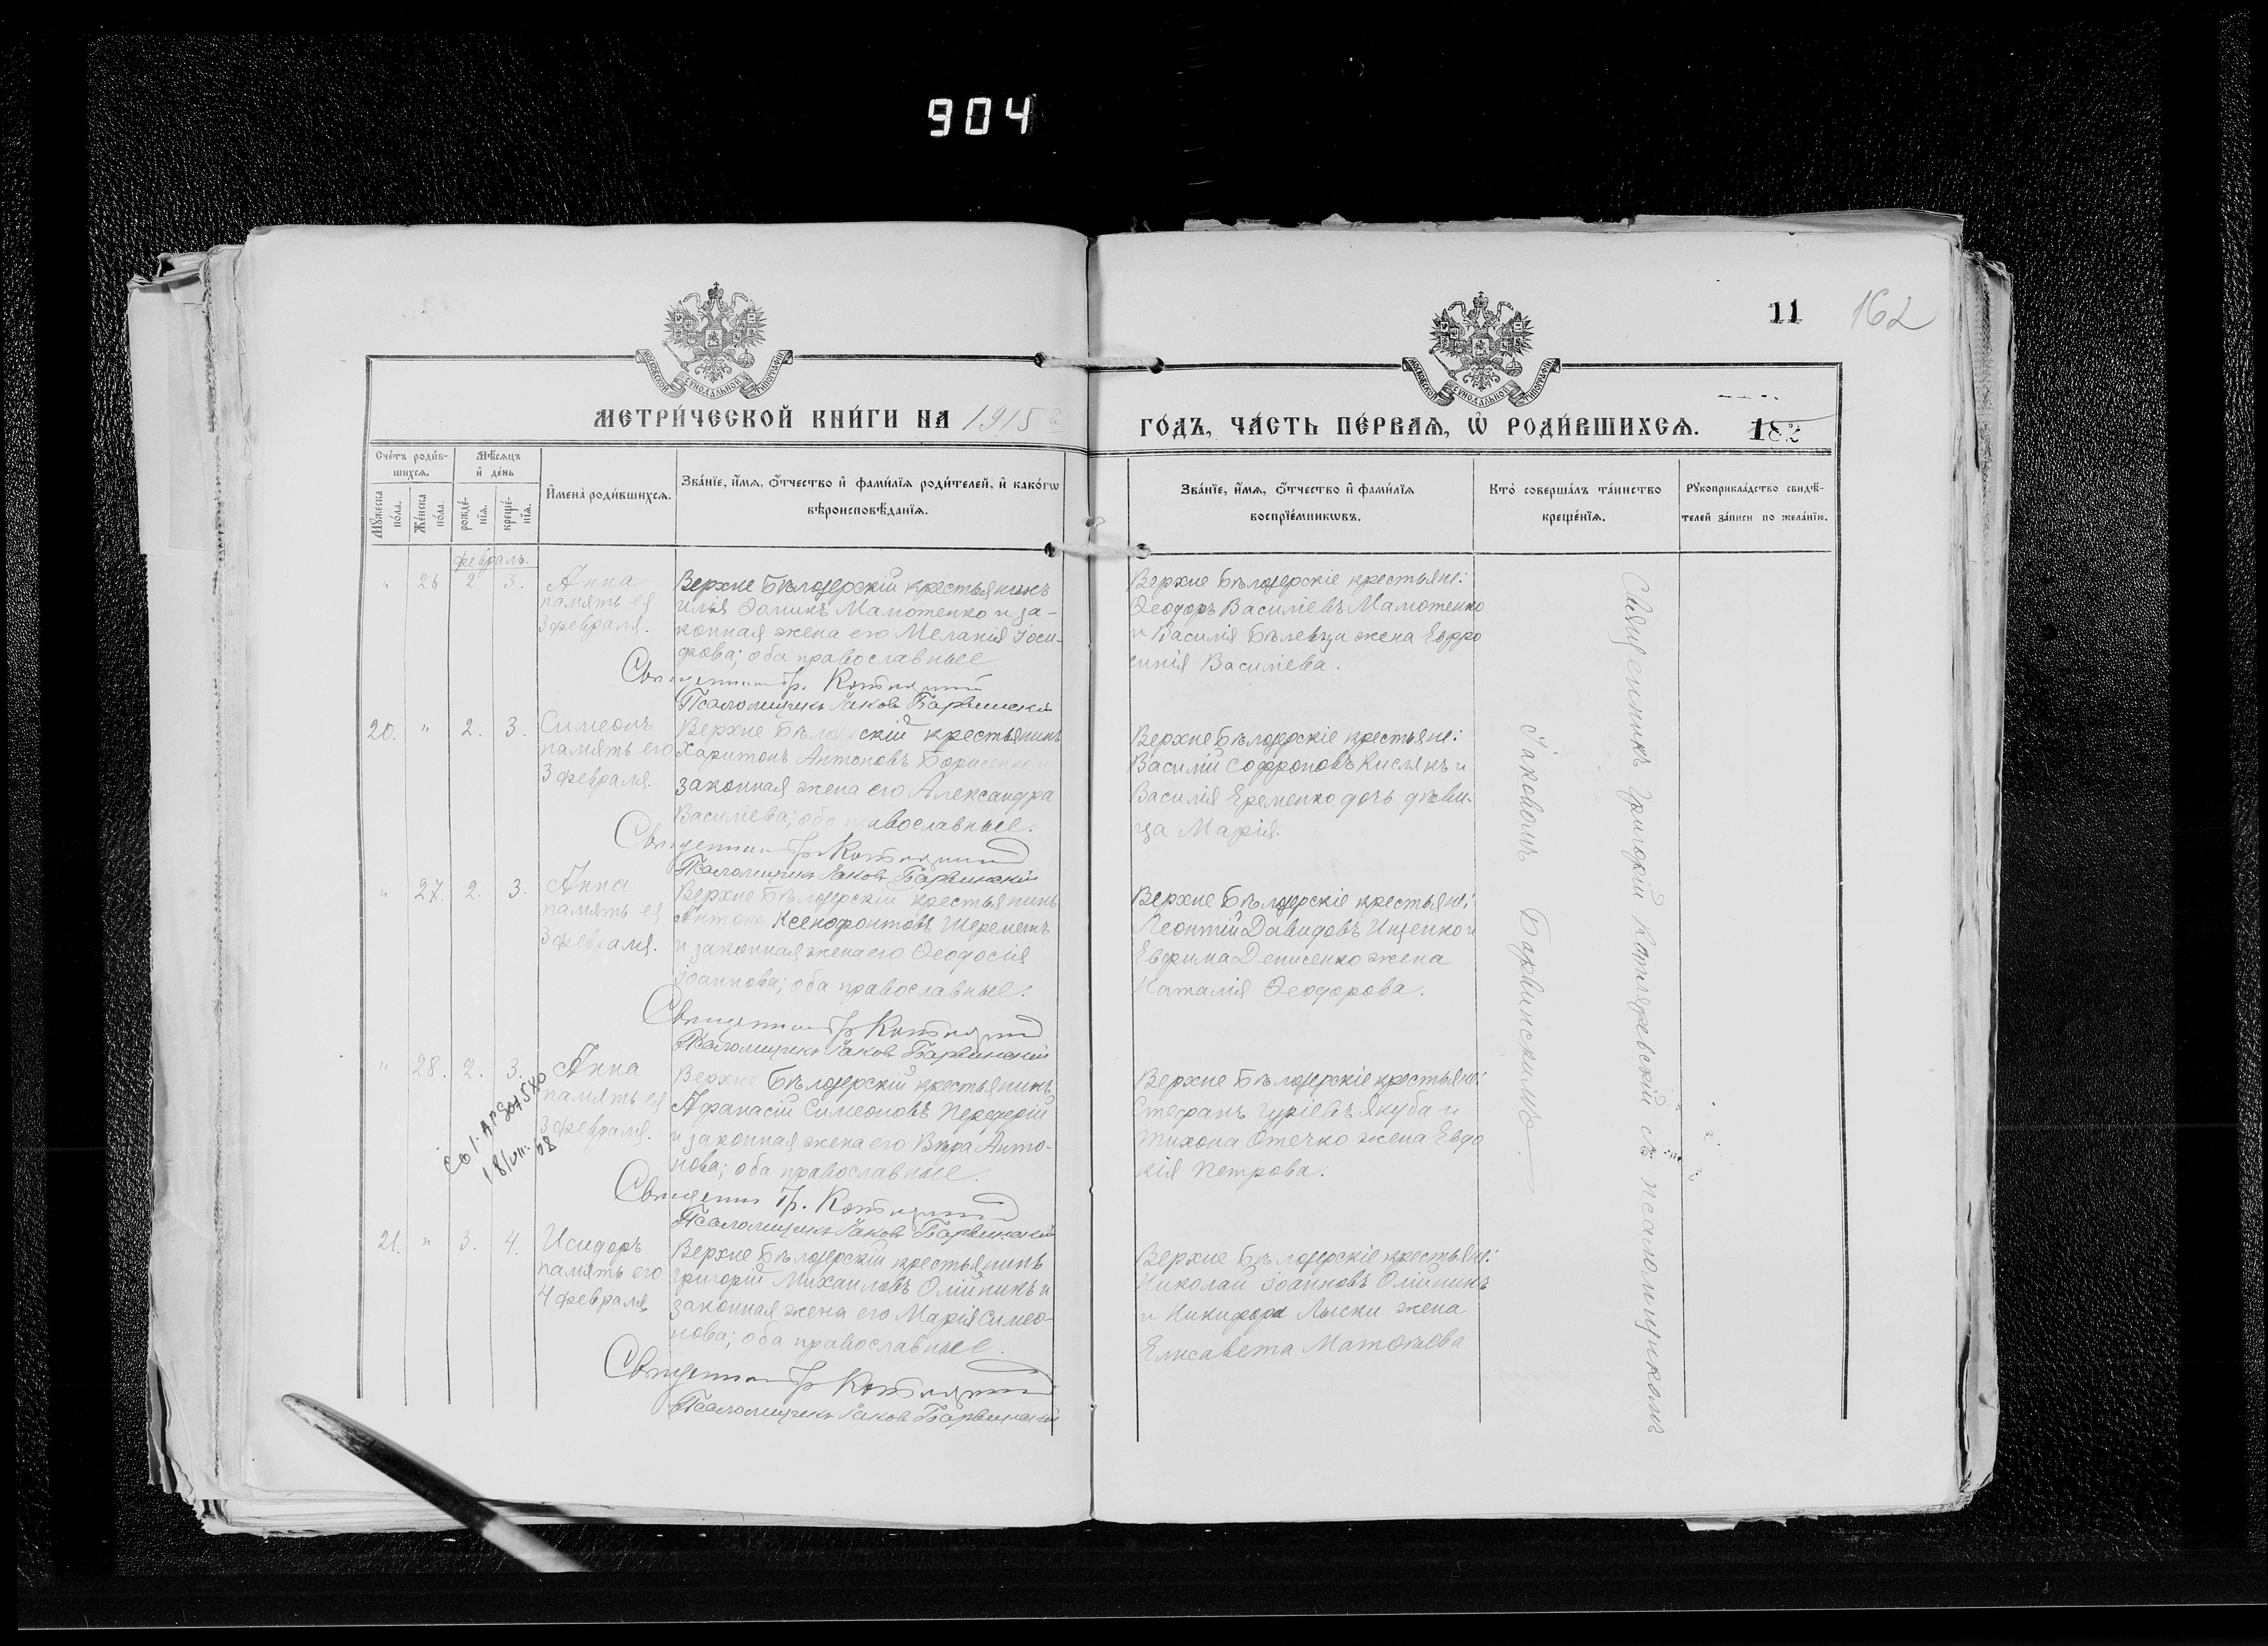 904
11
162
182
МОСКОВСКОЙ СУНОДАЛЬНОЙ ТИПОГРАФІИ
МОСКОВСКОЙ СУНОДАЛЬНОЙ ТИПОГРАФІИ
МЕТРИ́ЧЕСКОЙ КНИ́ГИ НА 1915 й
ГО́ДЪ, ЧА́СТЬ ПЕ́РВАѦ, Ѡ҆ РОДИ́ВШИХСѦ.
Сче́тъ роди́в-
шихсѧ.
Мѣ́сѧцъ
и҆ де́нь
Мꙋ́жеска
по́ла.
Же́нска
по́ла.
рожде́-
нїѧ.
креще́-
нїѧ.
И҆мена̀ роди́вшихсѧ.
Зва́нїе, и҆́мѧ, ѻ҆́тчество и҆ фами́лїѧ роди́телей, и҆ како́гѡ
вѣроисповѣ́данїѧ.
Зва́нїе, и҆́мѧ, ѻ҆́тчество и҆ фами́лїѧ
воспрїе́мникѡвъ.
Кто̀ соверша́лъ та́инство
креще́нїѧ.
Рꙋкоприкла́дство свидѣ́-
телей за́писи по жела́нїю.
Февраль.
" 26 2 3. Анна
память ея
3 февраля.
Верхне Бѣлозерскій крестьянинъ
Илья Ѳоминъ Мамотенко и за-
конная жена его Меланія Іоси-
фова; оба православные.
Священникъ Гр. Котляревскій
Псаломщикъ Іаковъ Барвинскій
Верхне Бѣлозерскіе крестьяне:
Ѳеодоръ Василіевъ Мамотенко
и Василія Бѣлевца жена Евфро
синія Василіева.
20. " 2. 3. Симеонъ
память его
3 февраля.
Верхне Бѣлозерскій крестьянинъ
Харитонъ Антоновъ Борисенко и
законная жена его Александра
Василіева; оба православные.
Священникъ Гр. Котляревскій
Псаломщикъ Іаковъ Барвинскій
Верхне Бѣлозерскіе крестьяне:
Василій Софроновъ Кислякъ и
Василія Еременко дочь дѣви-
ца Марія.
" 27. 2. 3. Анна
память ея
3 февраля.
Верхне Бѣлозерскій крестьянинъ
Антонъ Ксенофонтовъ Шереметъ
и законная жена его Ѳеодосія
Іоаннова; оба православные.
Священникъ Гр. Котляревскій
Псаломщикъ Іаковъ Барвинскій
Верхне Бѣлозерскіе крестьяне:
Леонтій Давидовъ Ищенко и
Евфима Денисенко жена
Наталія Ѳеодорова.
" 28. 2. 3. Анна
память ея
3 февраля.
Верхне Бѣлозерскій крестьянинъ
Афанасій Симеоновъ Передерій
и законная жена его Вѣра Анто-
нова; оба православные.
Священникъ Гр. Котляревскій
Псаломщикъ Іаковъ Барвинскій
Верхне Бѣлозерскіе крестьяне:
Стефанъ Гуріевъ Якуба и
Тихона Отечко жена Евдо
кія Петрова.
21. " 3. 4. Исидоръ
память его
4 февраля
Верхне Бѣлозерскій крестьянинъ
Григорій Михаиловъ Олійникъ и
законная жена его Марія Симео-
нова; оба православные.
Священникъ Гр. Котляревскій
Псаломщикъ Іаковъ Барвинскій
Верхне Бѣлозерскіе крестьяне:
Николай Іоанновъ Олійникъ
и Никифора Лыски жена
Елисавета Матѳіева
Священникъ Григорій Котляревскій съ псаломщикомъ
Іаковомъ Барвинскимъ.